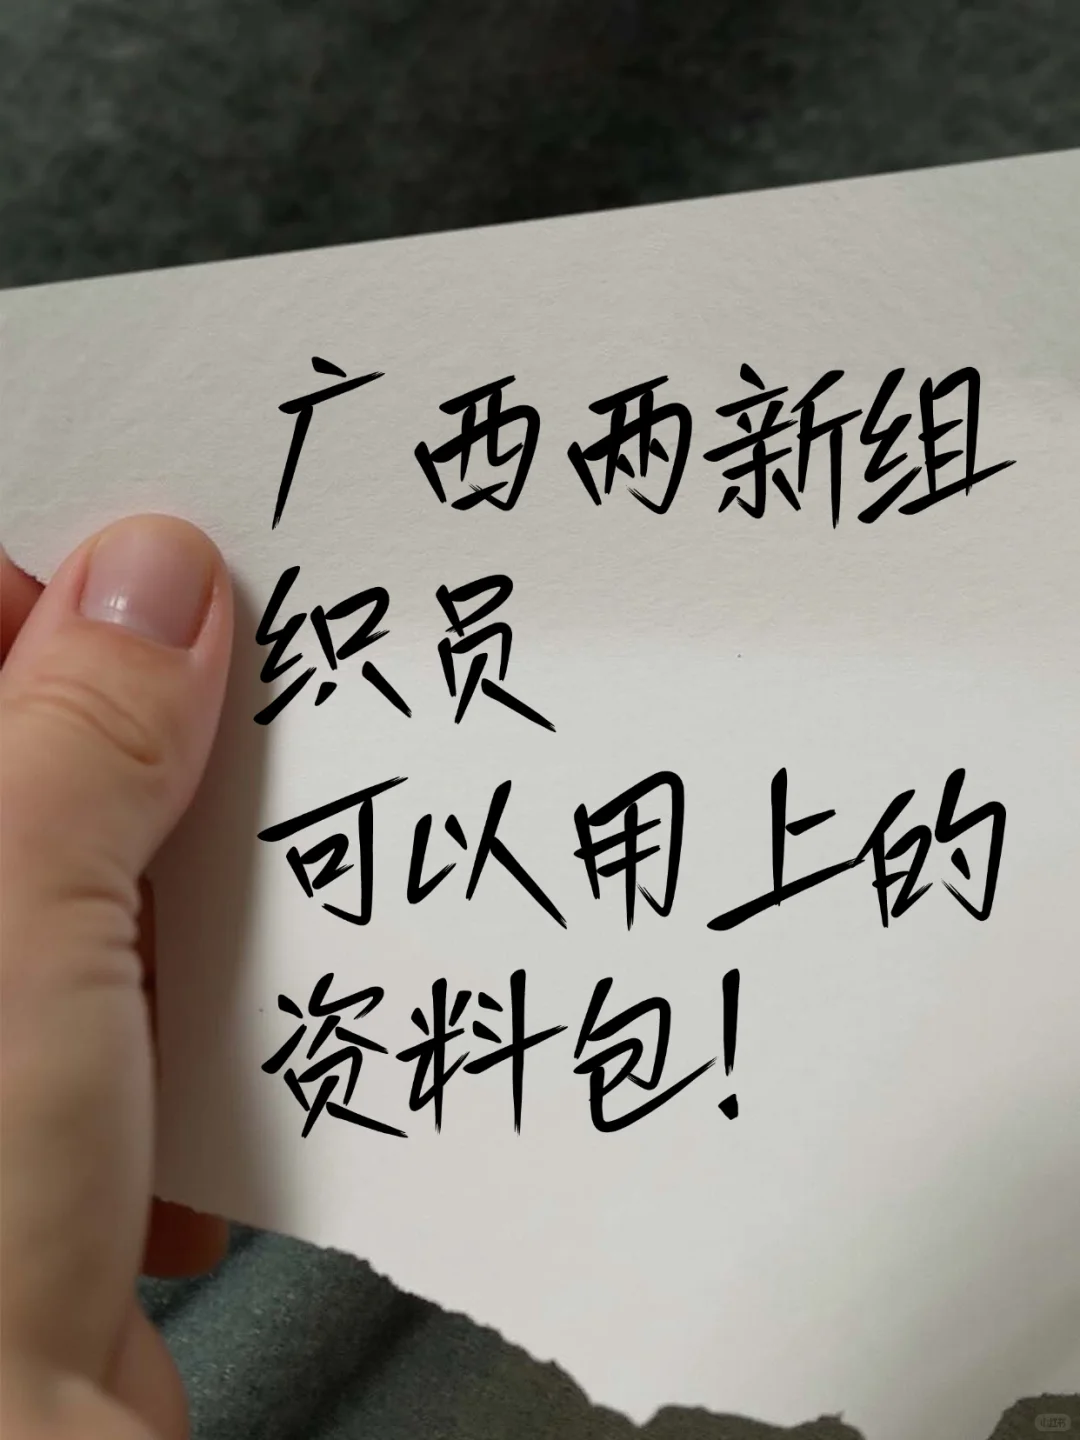 广西两新组
织员
可以用上的
资料包！
小红书